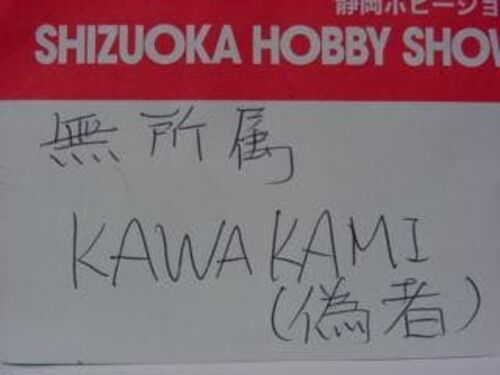 静岡ホビーショ
SHIZUOKA HOBBY SHOW
無所属
KAWAKAMI
(偽者)